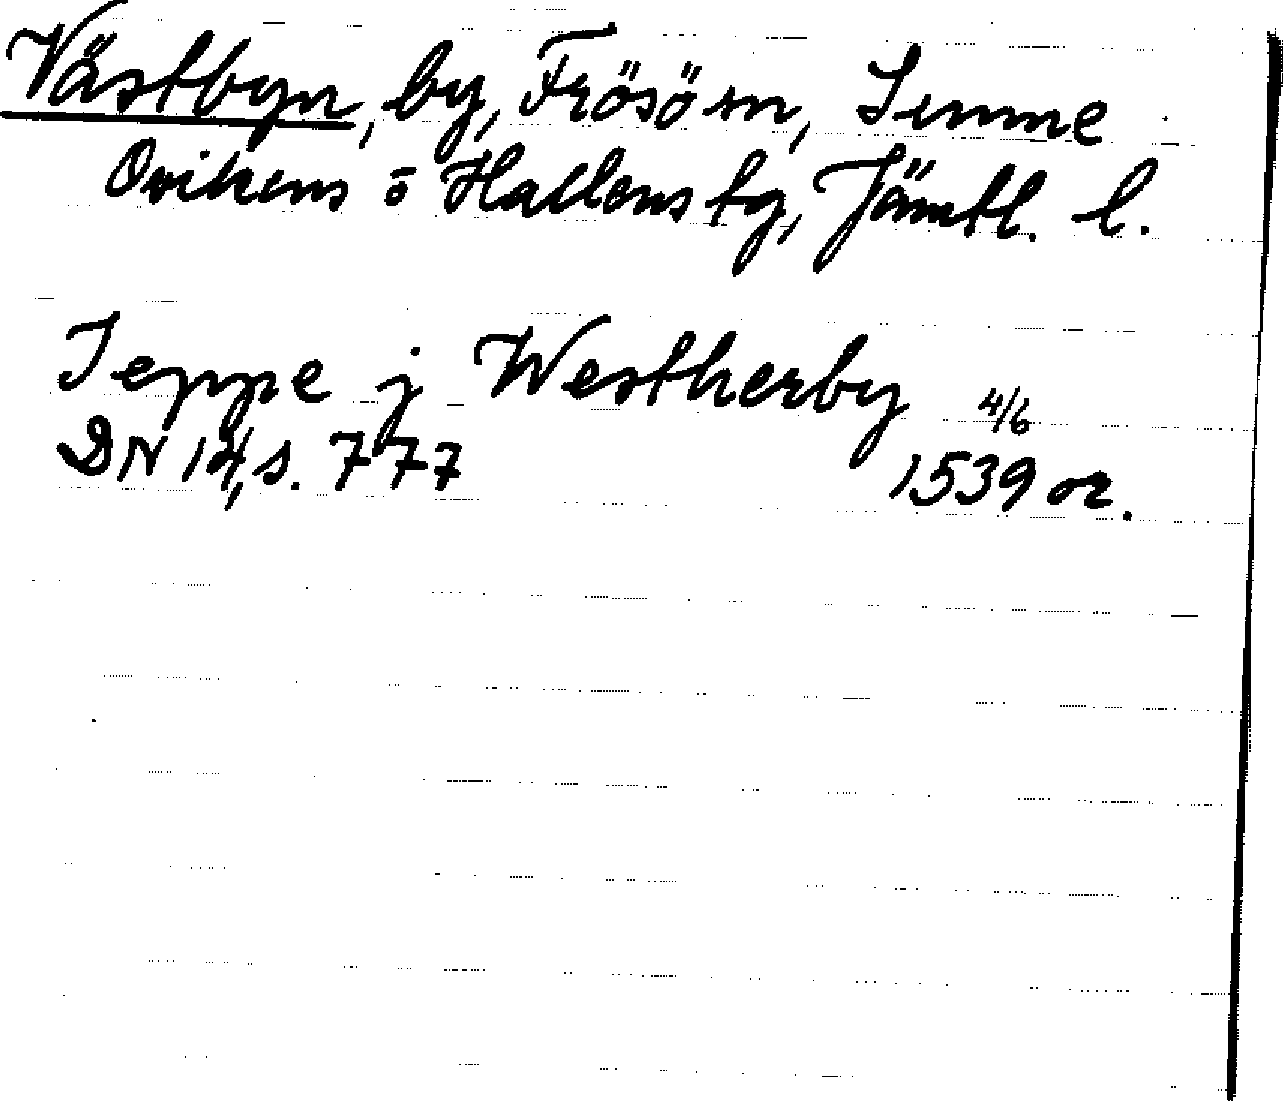 Västbyn, by, Frösö sn, Sunne
Ovikens o Hallens tg, Jämtl. l.
Jeppe j Westherby 4/6
DN 14, s. 777 1539 or.